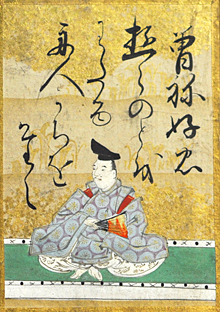 曾祢好忠
由らのとを
わたる
舟人かちを
たえ